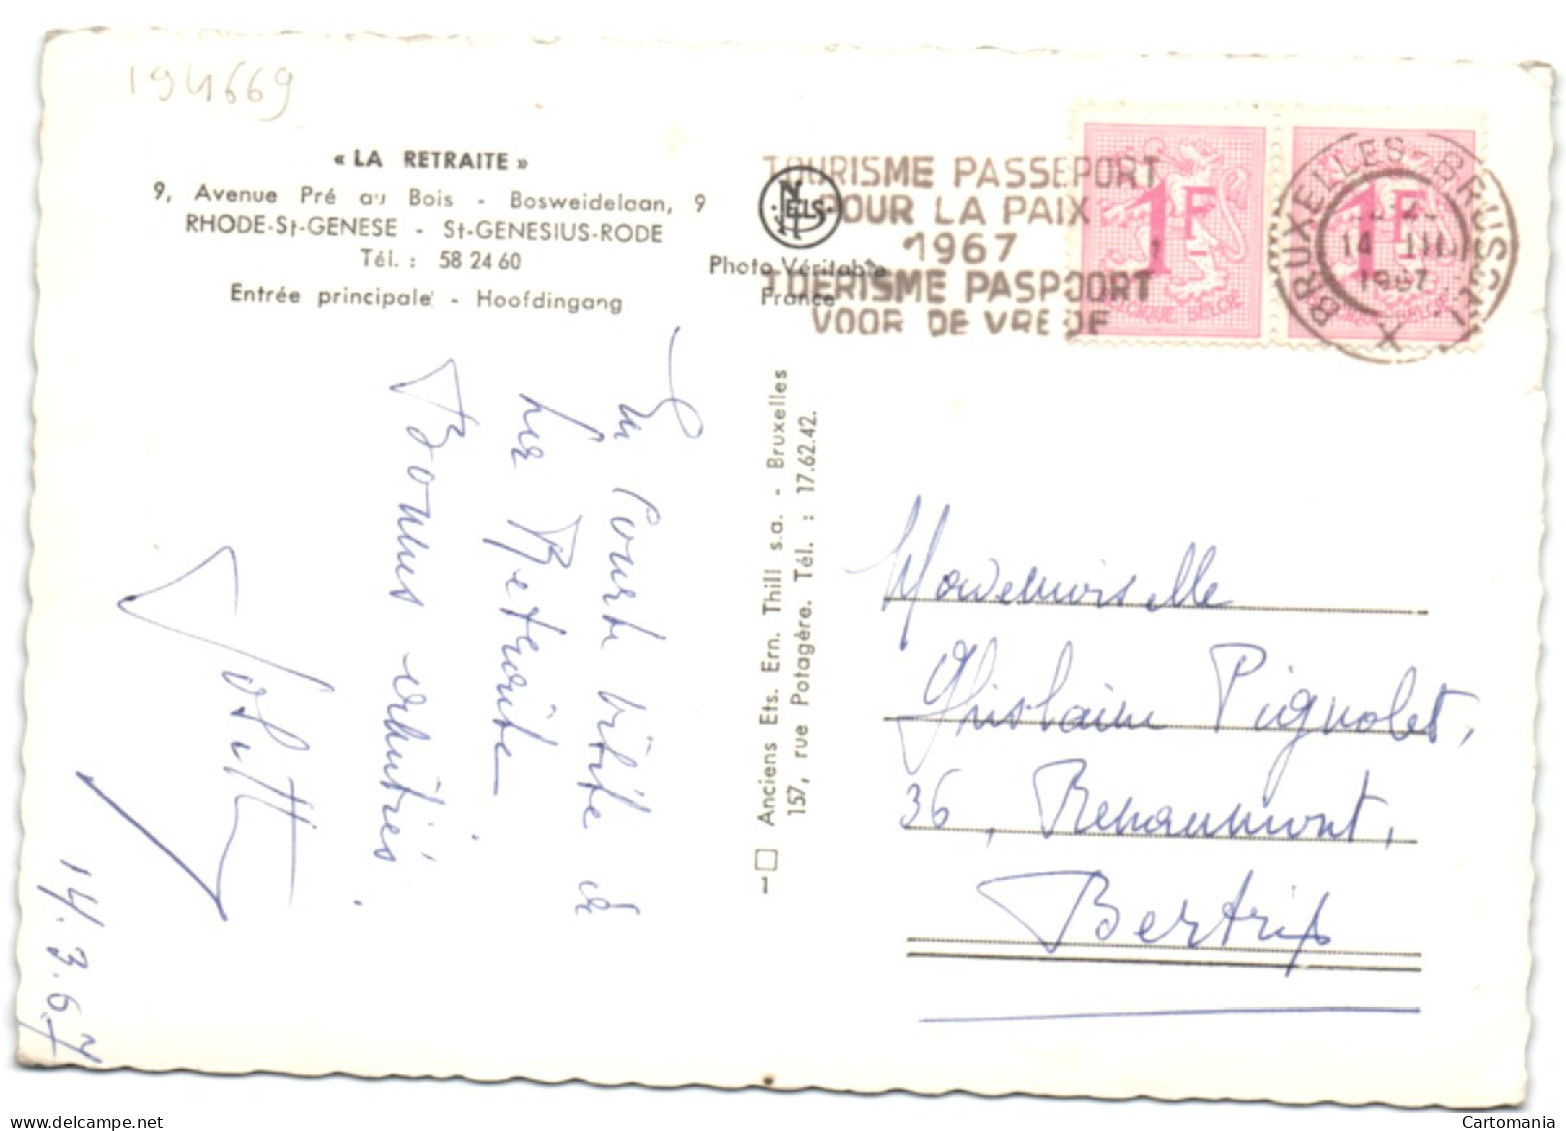 194669
« LA RETRAITE »
9, Avenue Pré au Bois - Bosweidelaan, 9
RHODE-St-GENESE - St-GENESIUS-RODE
Tél. : 58 24 60
Entrée principale - Hoofdingang
NELS
Photo Véritable
France
TOURISME PASSEPORT
POUR LA PAIX
1967
TOERISME PASPOORT
VOOR DE VREDE
1F
BELGIQUE BELGIE
1F
BELGIQUE BELGIE
BRUXELLES X BRUSSEL
14 III
1967
En courte visite à
la Retraite
Bonnes amitiés.
14.3.67
Anciens Ets. Ern. Thill s.a. - Bruxelles
157, rue Potagère. Tél. : 17.62.42.
Mademoiselle
Ghislaine Pignolet,
36, Renaumont,
Bertrix
delcampe.net
Cartomania